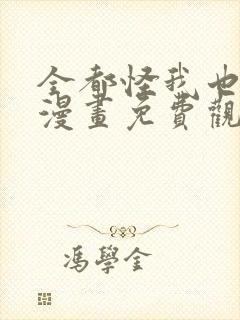 全都怪我也
漫畫免費觀
馮學金